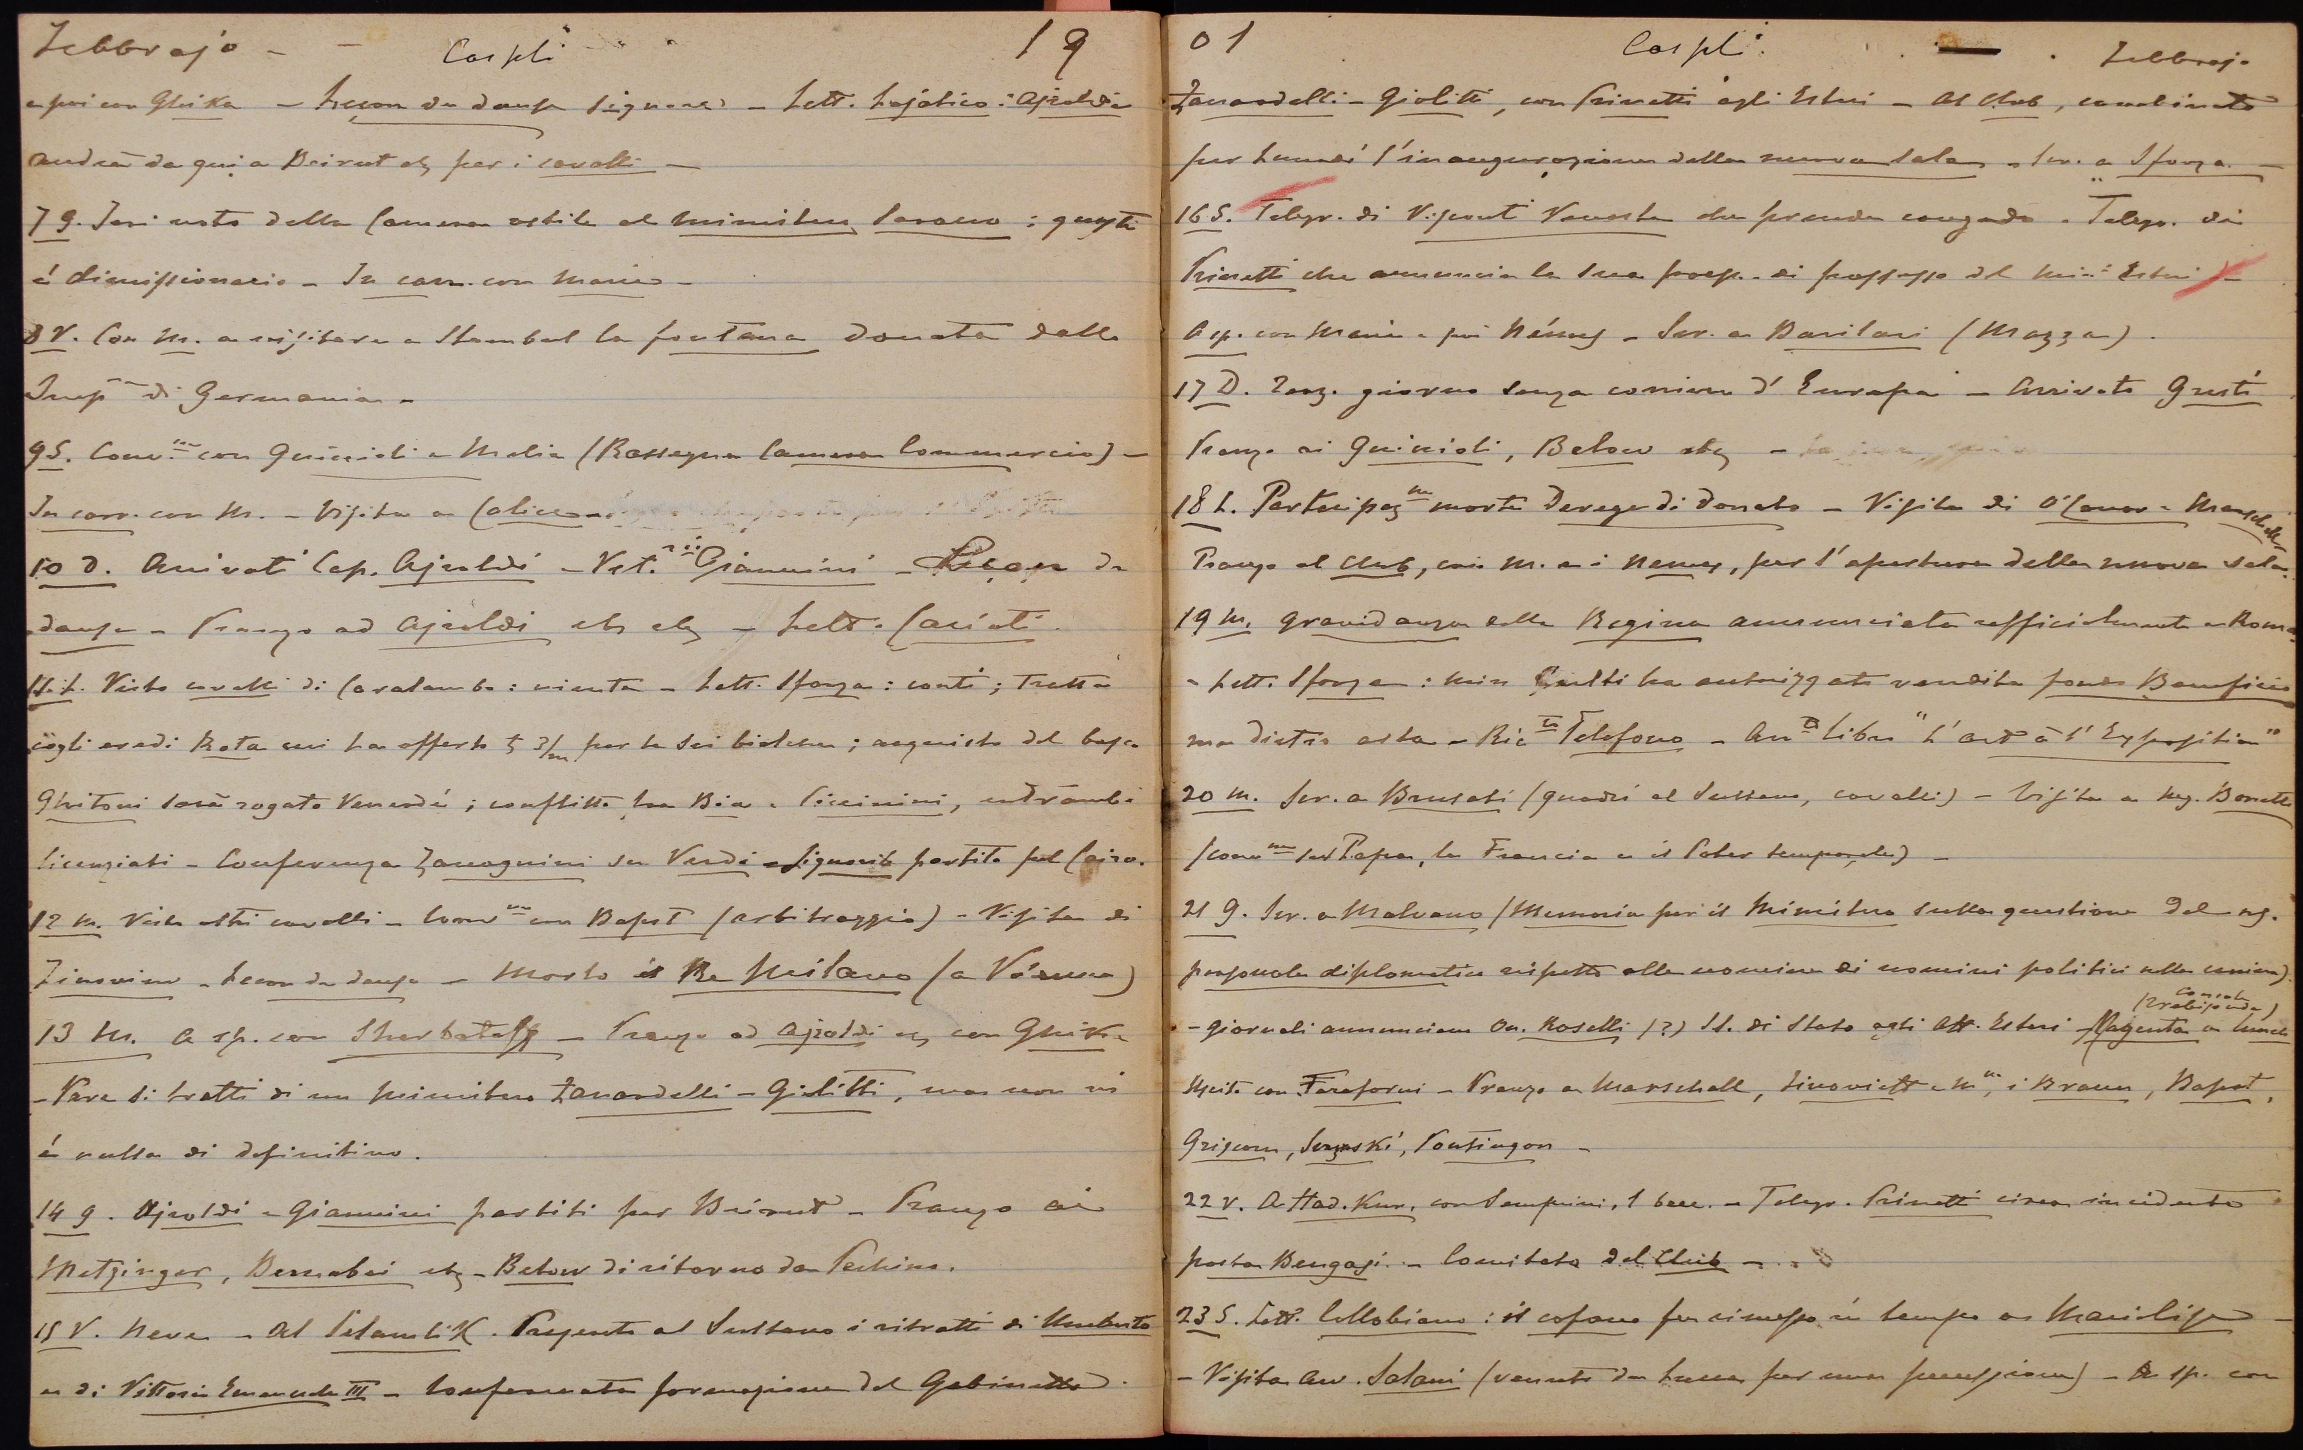 Febbrajo - - Cospli 19
e poi con Ghika - Leçon de danse signora - Lett. Lajatico: Ajroldi
andrà da qui a Beirut etc per i cavalli -
7 G. Ieri voto della Camera ostile al ministero Saracco: questi
è dimissionario - In carr. con Maria -
8 V. Con M. a visitare a Stambul la fontana donata dallo
Imp.re di Germania -
9 S. Conv.ne con Guiccioli e Melia (Rassegna Camera Commercio) -
In carr. con M. - Visita a Calice -
10 D. Arrivati Cap. Ajroldi - Vet.rio Giannini - Leçon de
danse - Pranzo ad Ajroldi etc etc - Lett. Cariati.
11 L. Visto cavalli di Caralambo: niente - Lett. Sforza: conti; tratta
cogli eredi Rota cui ha offerto 3/m per le sei biolche; acquisto del bosco
Ghitoni sarà rogato Venerdì; conflitto tra Bia e Piccinini, entrambi
licenziati - Conferenza Zamagnini su Verdi - Signorile partito pel Cairo.
12 M. Visto altri cavalli - Conv.ne con Bapst (arbitraggio) - Visita di
Zinoview - Leçon de danse - Morto il Re Milano (a Vienna)
13 M. A sp. con Sherbatoff - Pranzo ad Ajroldi etc con Ghika
- Pare si tratti di un ministero Zanardelli - Giolitti, ma non vi
è nulla di definitivo.
14 G. Ajroldi e Giannini partiti per Beirut - Pranzo ai
Metzinger, Bernabei etc - Below di ritorno da Pechino.
15 V. Neve - Al Selamlik. Presento al Sultano i ritratti di Umberto
e di Vittorio Emanuele III - Confermata formazione del Gabinetto.
01 Cospli. - Febbrajo
Zanardelli - Giolitti, con Prinetti agli Esteri - Al Club, combinato
per Lunedì l'inaugurazione della nuova sala - Scr. a Sforza. -
16 S. Telegr. di Visconti Venosta che prende congedo - Telegr. di
Prinetti che annuncia la sua presa di possesso del Min.o Esteri -
A sp. con Maria e poi Némes - Scr. a Barilari (Mazza).
17 D. Terz. giorno senza corriere d'Europa - Arrivato Gresti
Pranzo ai Guiccioli, Below etc -
18 L. Partecipaz.ne morte Derege di Donato - Visita di O'Conor e Marschall
Pranzo al Club, con M. e i Nemes, per l'apertura della nuova sala.
19 M. Gravidanza della Regina annunciata ufficialmente a Roma
- Lett. Sforza: Min Culti ha autorizzato vendita fondo Beneficio
ma dietro asta - Ric.to Telefono - Arr.to libro "L'art à l'Exposition"
20 M. Scr. a Brusati (quadri al Sultano, cavalli) - Visita a Mg. Bonetti
(conv.ne sul Papa, la Francia e il Poter temporale) -
21 G. Scr. a Malvano (Memoria per il Ministro sulla questione del
personale diplomatico rispetto alla nomina di uomini politici nella carriera)
- giornali annunciano On. Roselli (?) St. di Stato agli Aff. Esteri - Magenta (Console Trebisonda) a lunch
Uscito con Faraforni - Pranzo a Marschall, Zinovieff e M.me, i Braun, Bapst,
Griscom, , Pansingon -
22 V. A Had. Kur. con Semprini, 1 becc. - Telegr. Prinetti circa incidente
posta Bengasi - Comitato del Club -
23 S. Lett.a Collobiano: il cofano fu rimesso in tempo a Marsiglia -
- Visita avv. Salani (venuto da Lucca per una successione) - A sp. con